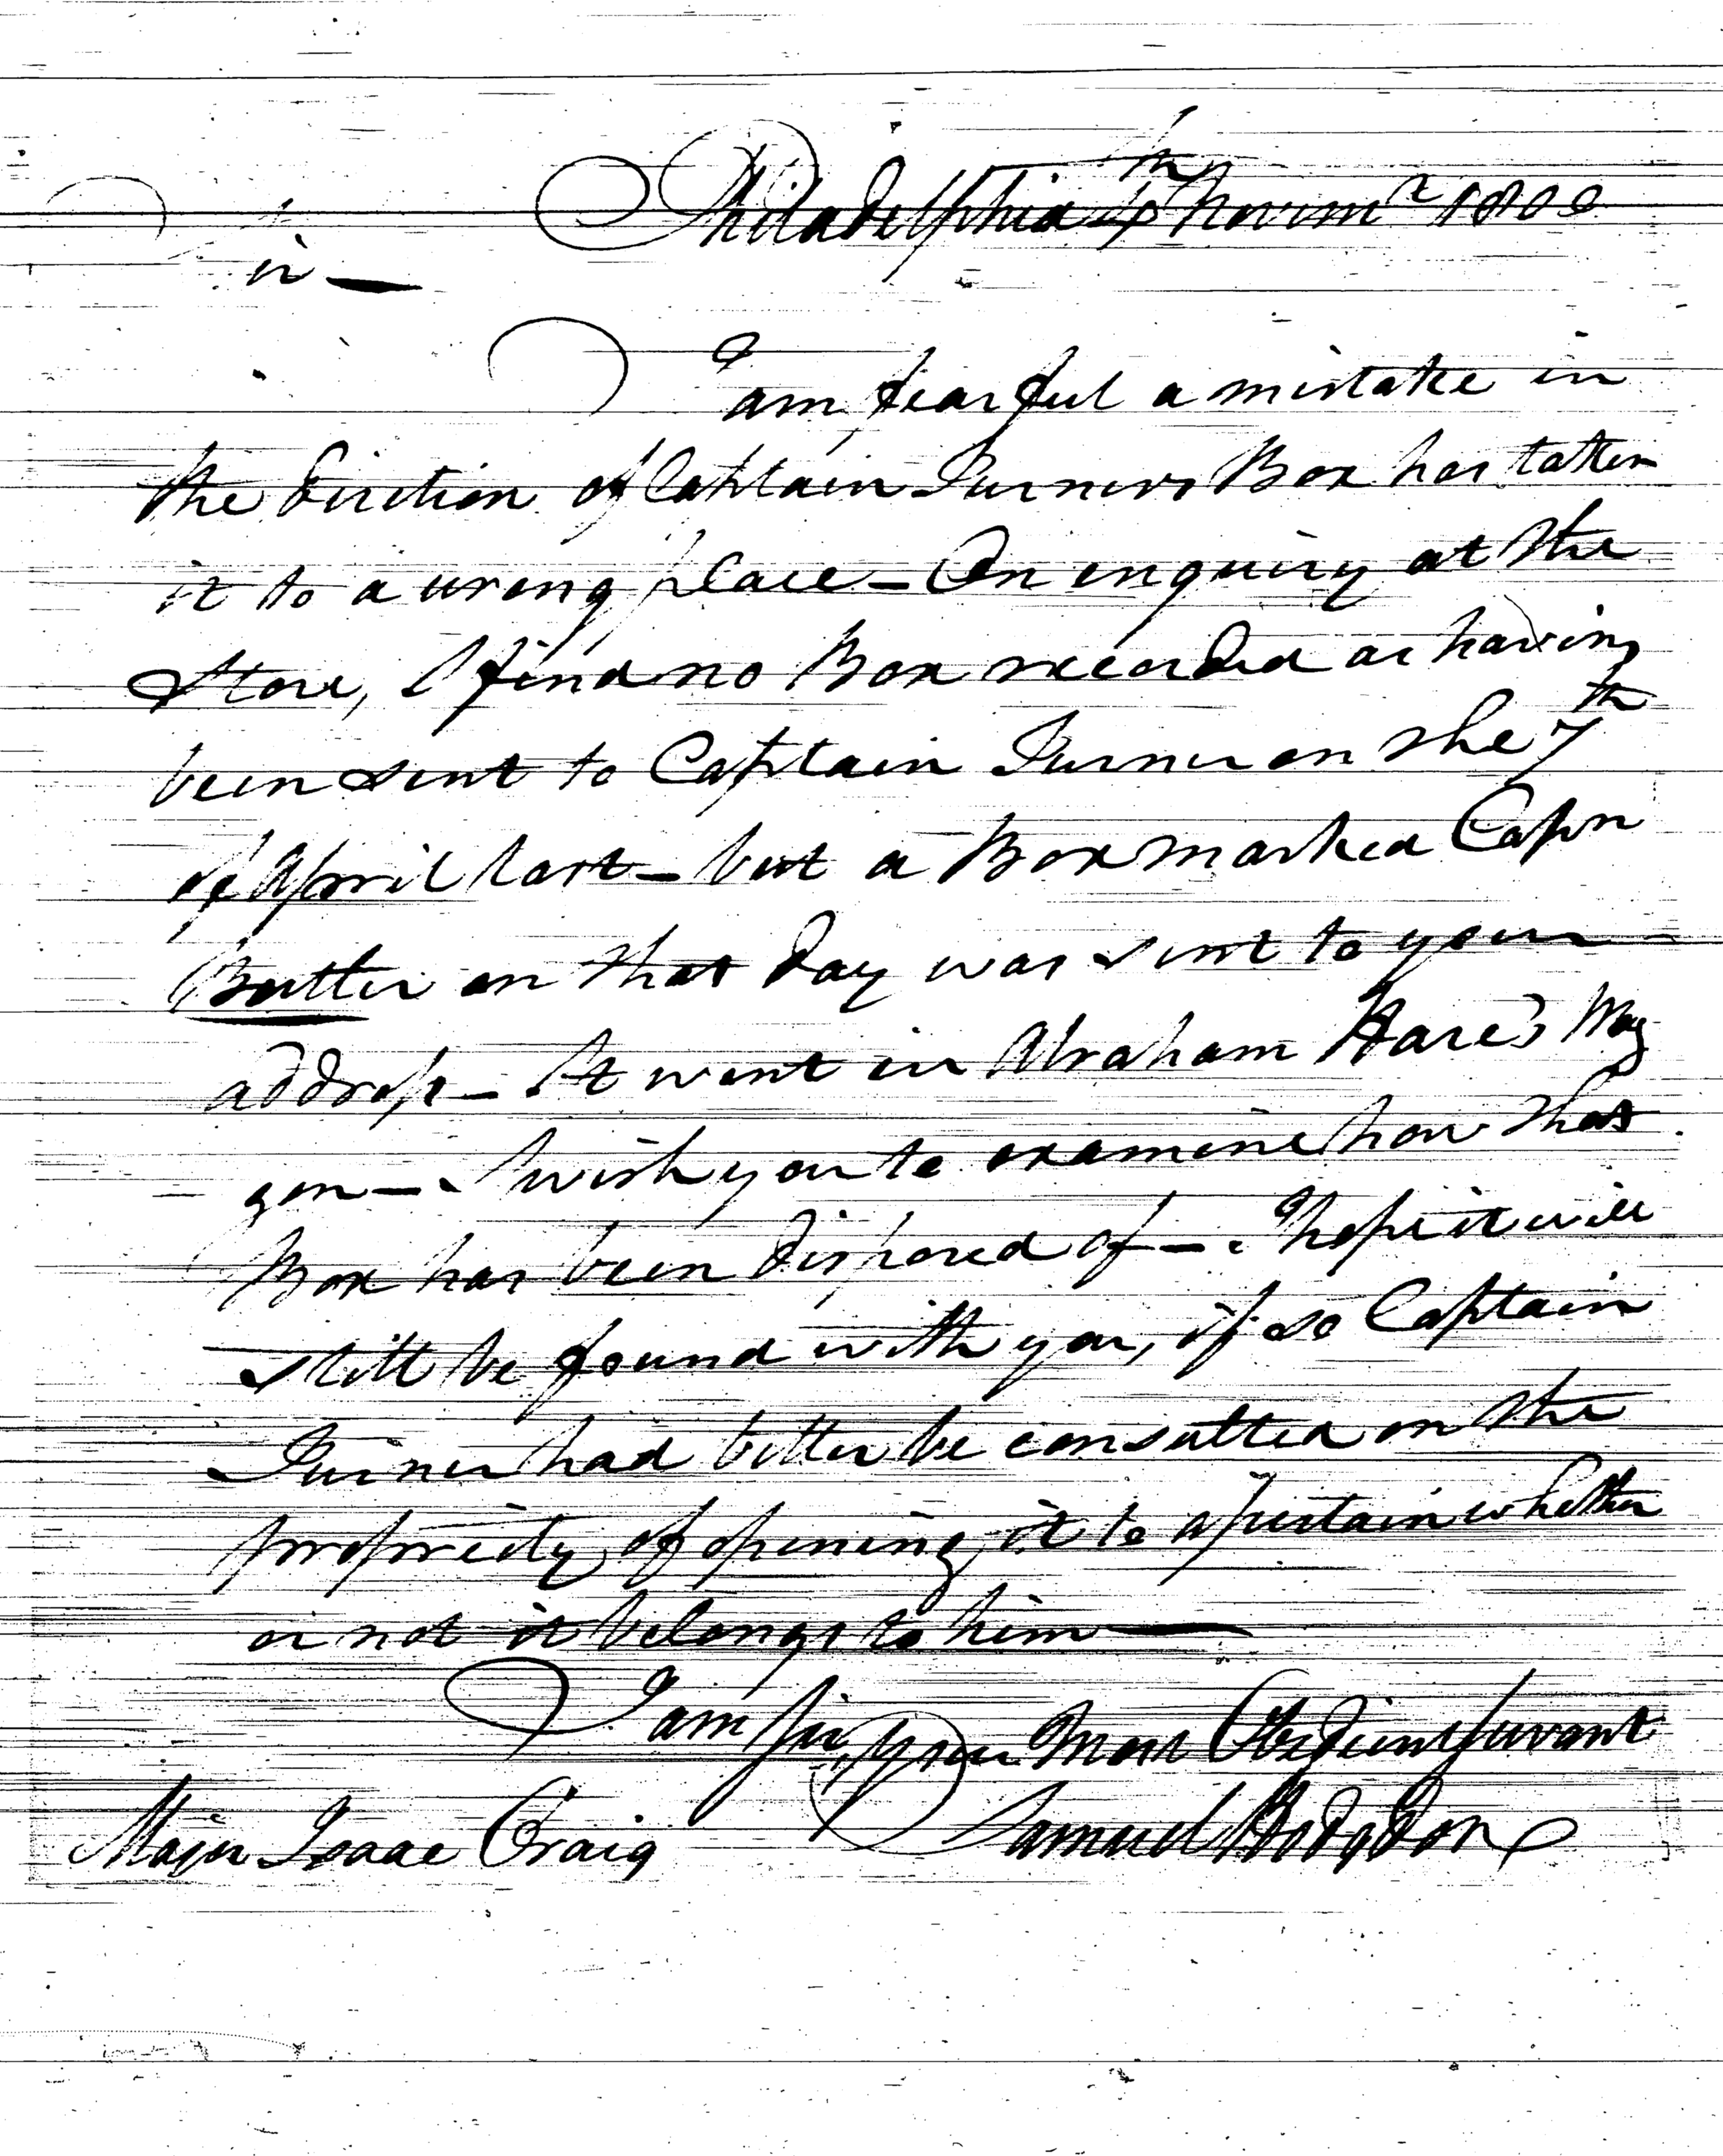 Philadelphia 4th Novemr 1800
Sir —
I am fearful a mistake in
the direction of Captain Turners Box has taken
it to a wrong place — On enquiry at the
Store, I find no Box recorded as having
been sent to Captain Turner on the 7th
of April last — but a Box marked Capn
Butler on that day was sent to your
address — It went in Abraham Hare's Wag
gon — I wish you to examine how that
Box has been disposed of — I hope it will
still be found with you, if so Captain
Turner had better be consulted on the
propriety of opening it to assertain whether
or not it belongs to him —
I am Sir, your Most Obedient Servant
Samuel Hodgdon
Major Isaac Craig